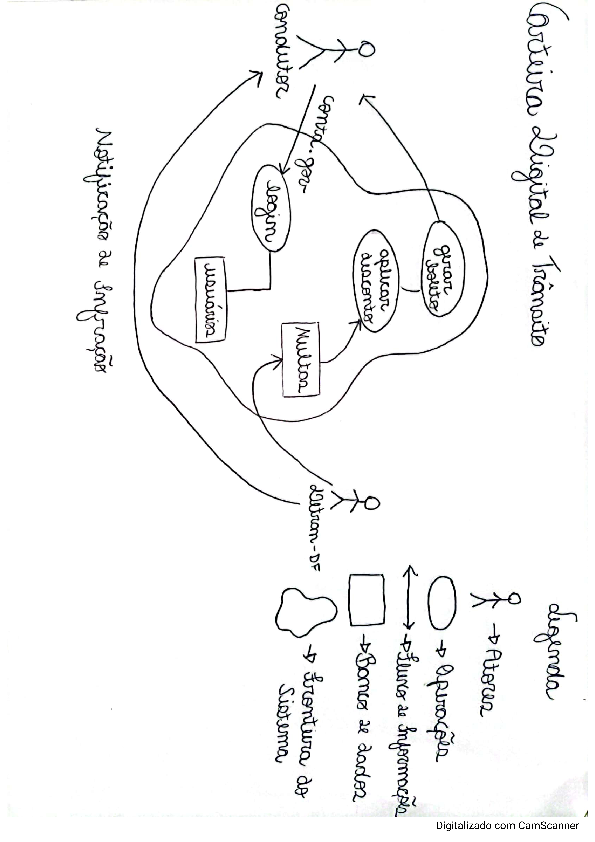 Carteira Digital de Trânsito
Condutor
conta.gov
login
usuários
gerar
boleto
aplicar
desconto
Multas
Detran-DF
Notificação de Infração
Legenda
→ Atores
→ Operações
→ Fluxo de Informação
→ Banco de dados
→ Fronteira do
Sistema
Digitalizado com CamScanner